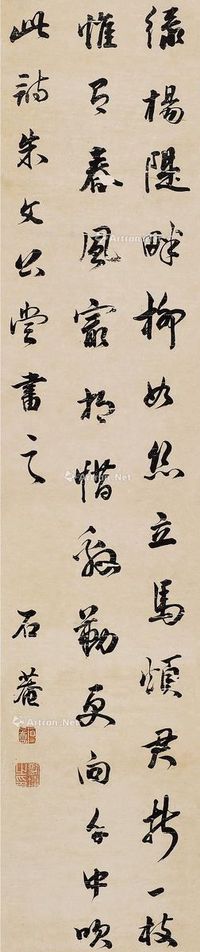 綠楊隄畔柳如絲立馬煩君折一枝
惟有春風㝡相惜慇勤更向手中吹
此詩朱文公嘗書之 石菴
Artron.Net